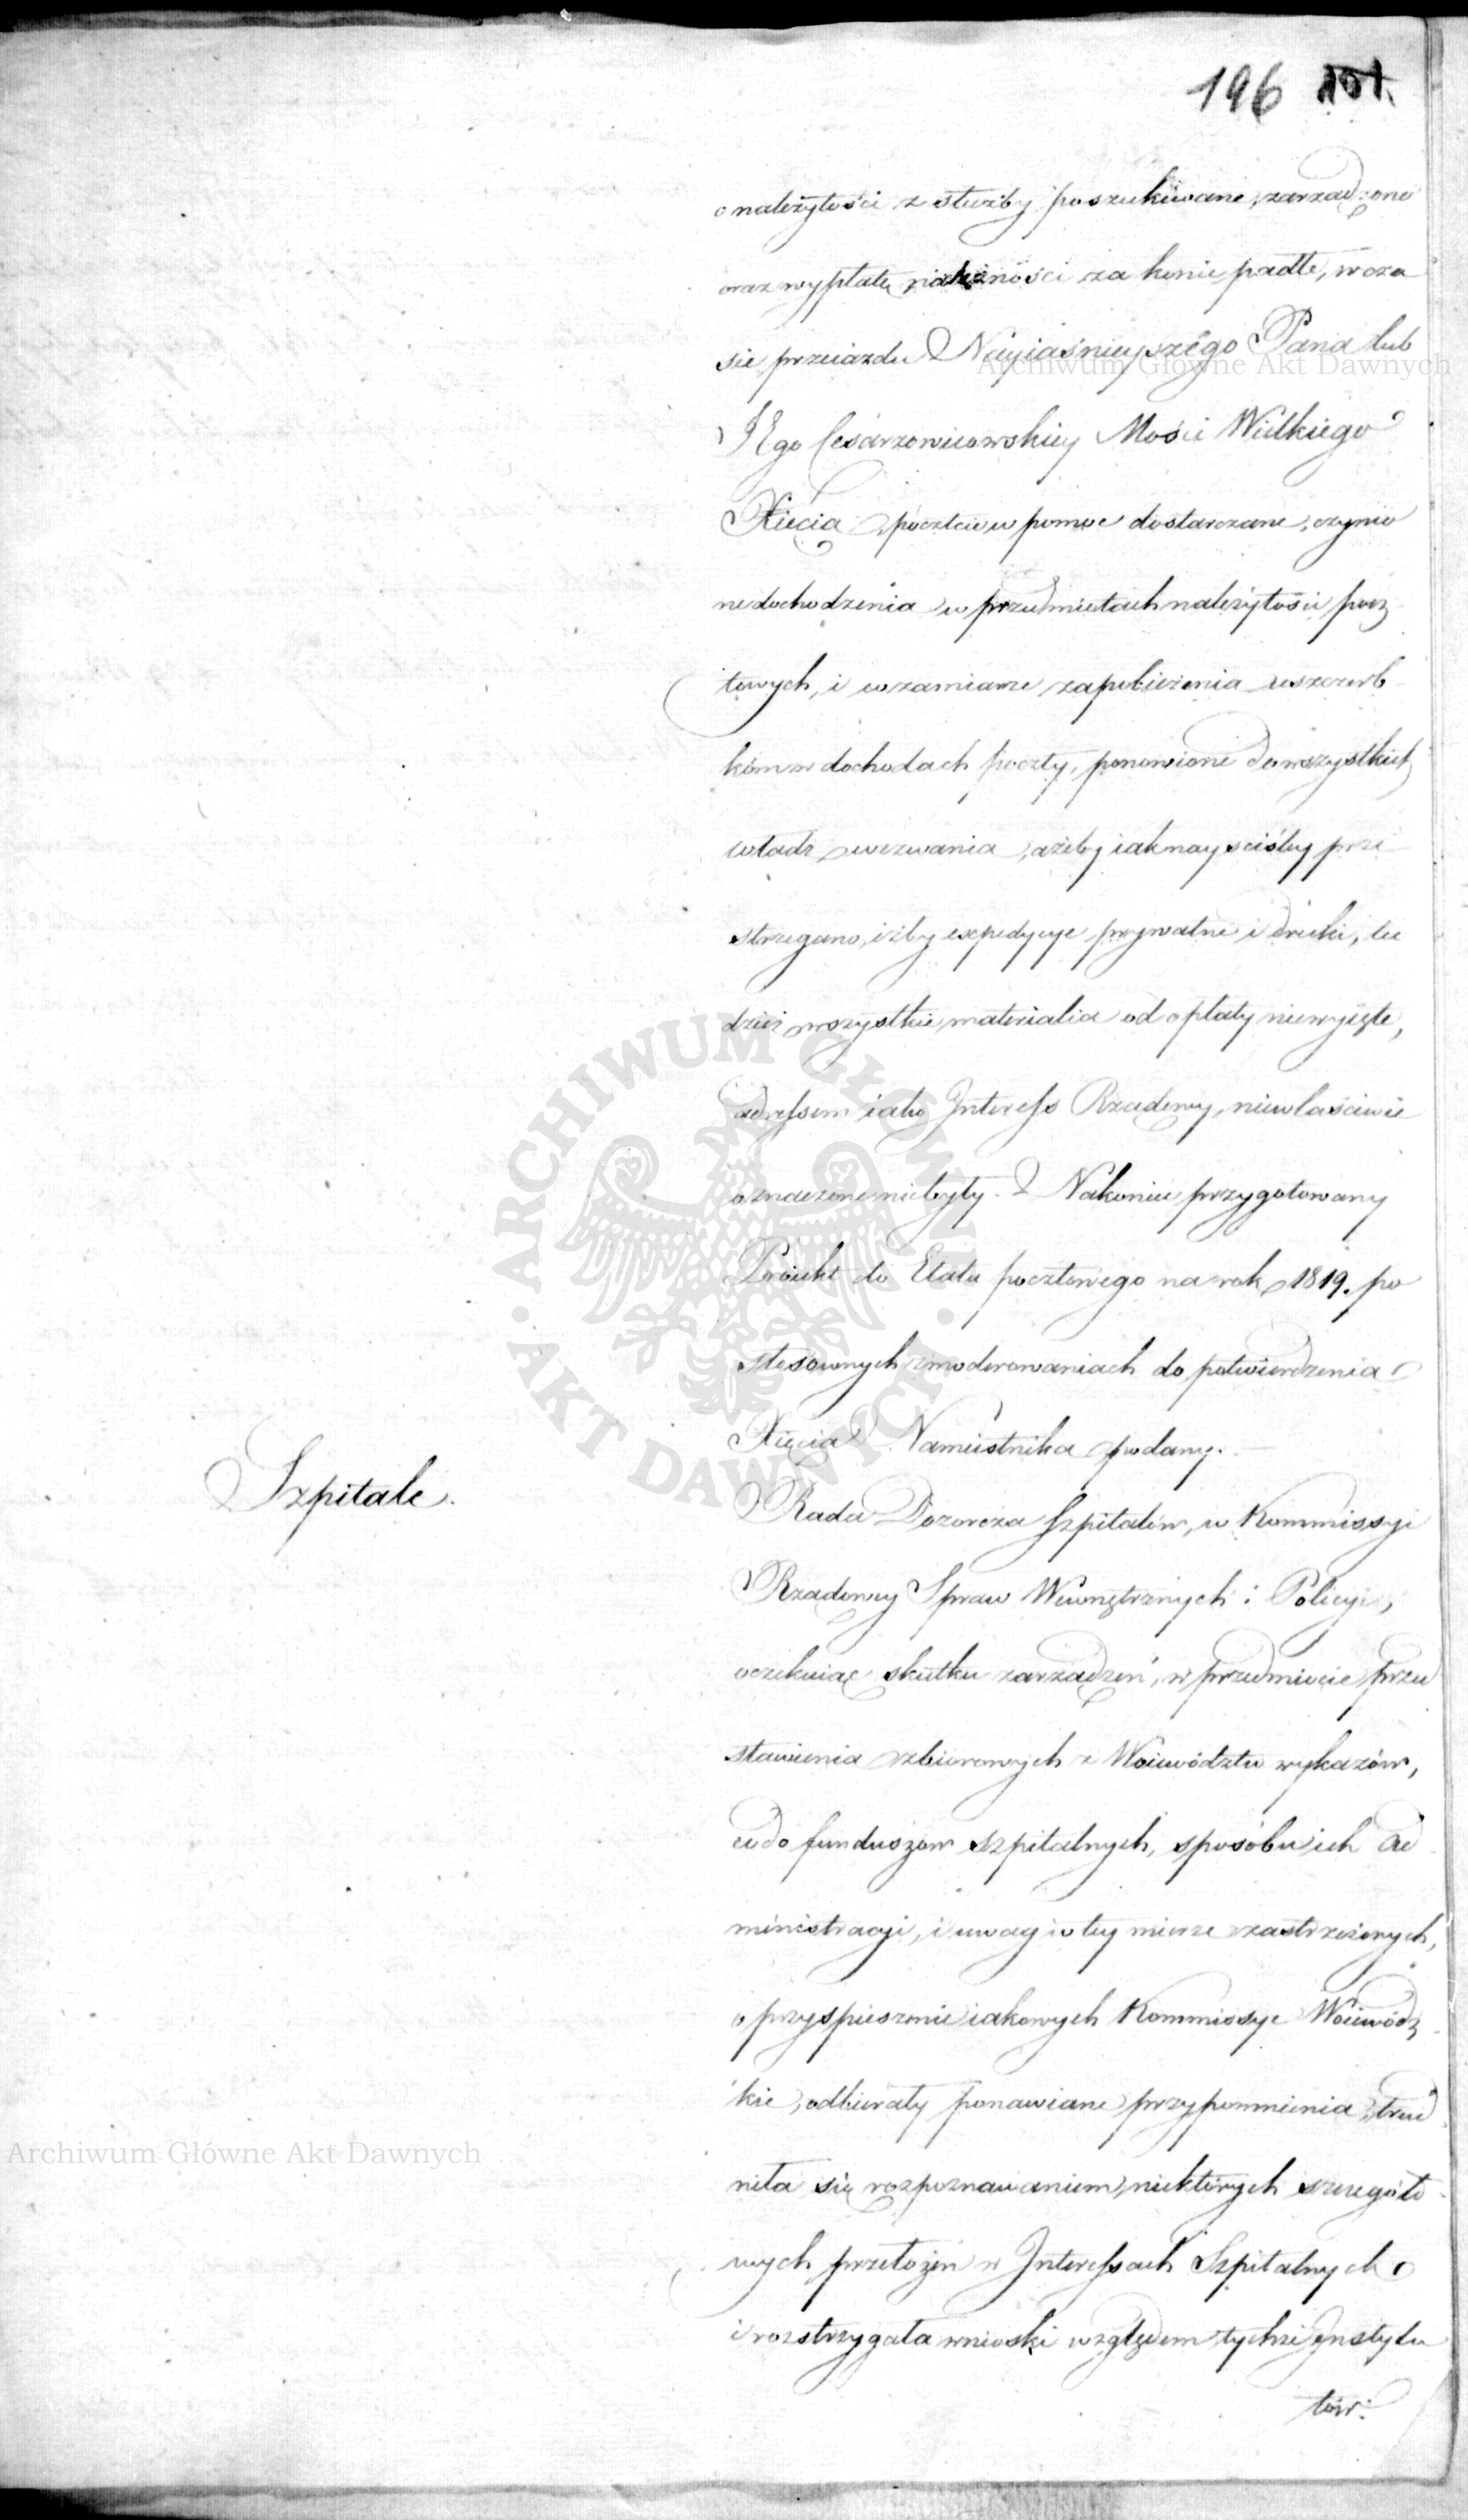 196 101.
o należytości z służby poszukiwane, zarządzono
oraz wypłatę należności za konie padłe, w cza
sie przeiazdu Nayiaśnieyszego Pana lub
JEgo Cesarzowicowskiey Mości Wielkiego
Xięcia, poczcie w pomoc dostarczane, czynio
ne dochodzenia w przedmiotach należytości pocz
towych, i w zamiarze zapobieżenia uszczerb
kóm w dochodach poczty, ponowione do wszystkich
władz wezwania, ażeby iak nayściśley prze
strzegano, iżby expedycye prywatne i druki, tu
dzież wszystkie materialia od opłaty niewyięte,
adressem iako Interess Rządowy, niewłaściwie
oznaczone niebyły. Nakoniec przygotowany
Proiekt do Etatu pocztowego na rok 1819. po
stosownych zmoderowaniach do potwierdzenia
Xięcia Namiestnika podany.
Szpitale.
Rada Dozorcza Szpitalów, w Kommissyi
Rządowey Spraw Wewnętrznych i Policyi,
oczekuiąc skutku zarządzeń, w przedmiocie przed
stawienia zbiorowych z Woiewództw wykazów,
co do funduszów szpitalnych, sposobu ich Ad
ministracyi, i uwag w tey mierze zastrzeżonych,
o przyspieszenie iakowych Kommissye Woiewódz
kie, odbierały ponawiane przypomnienia, trud
niła się rozpoznawaniem niektórych szczegóło
wych przełożeń w Interessach Szpitalnych
i rozstrzygała wnioski względem tychże Instytu
tów.
Archiwum Główne Akt Dawnych
Archiwum Główne Akt Dawnych
ARCHIWUM GŁÓWNE AKT DAWNYCH